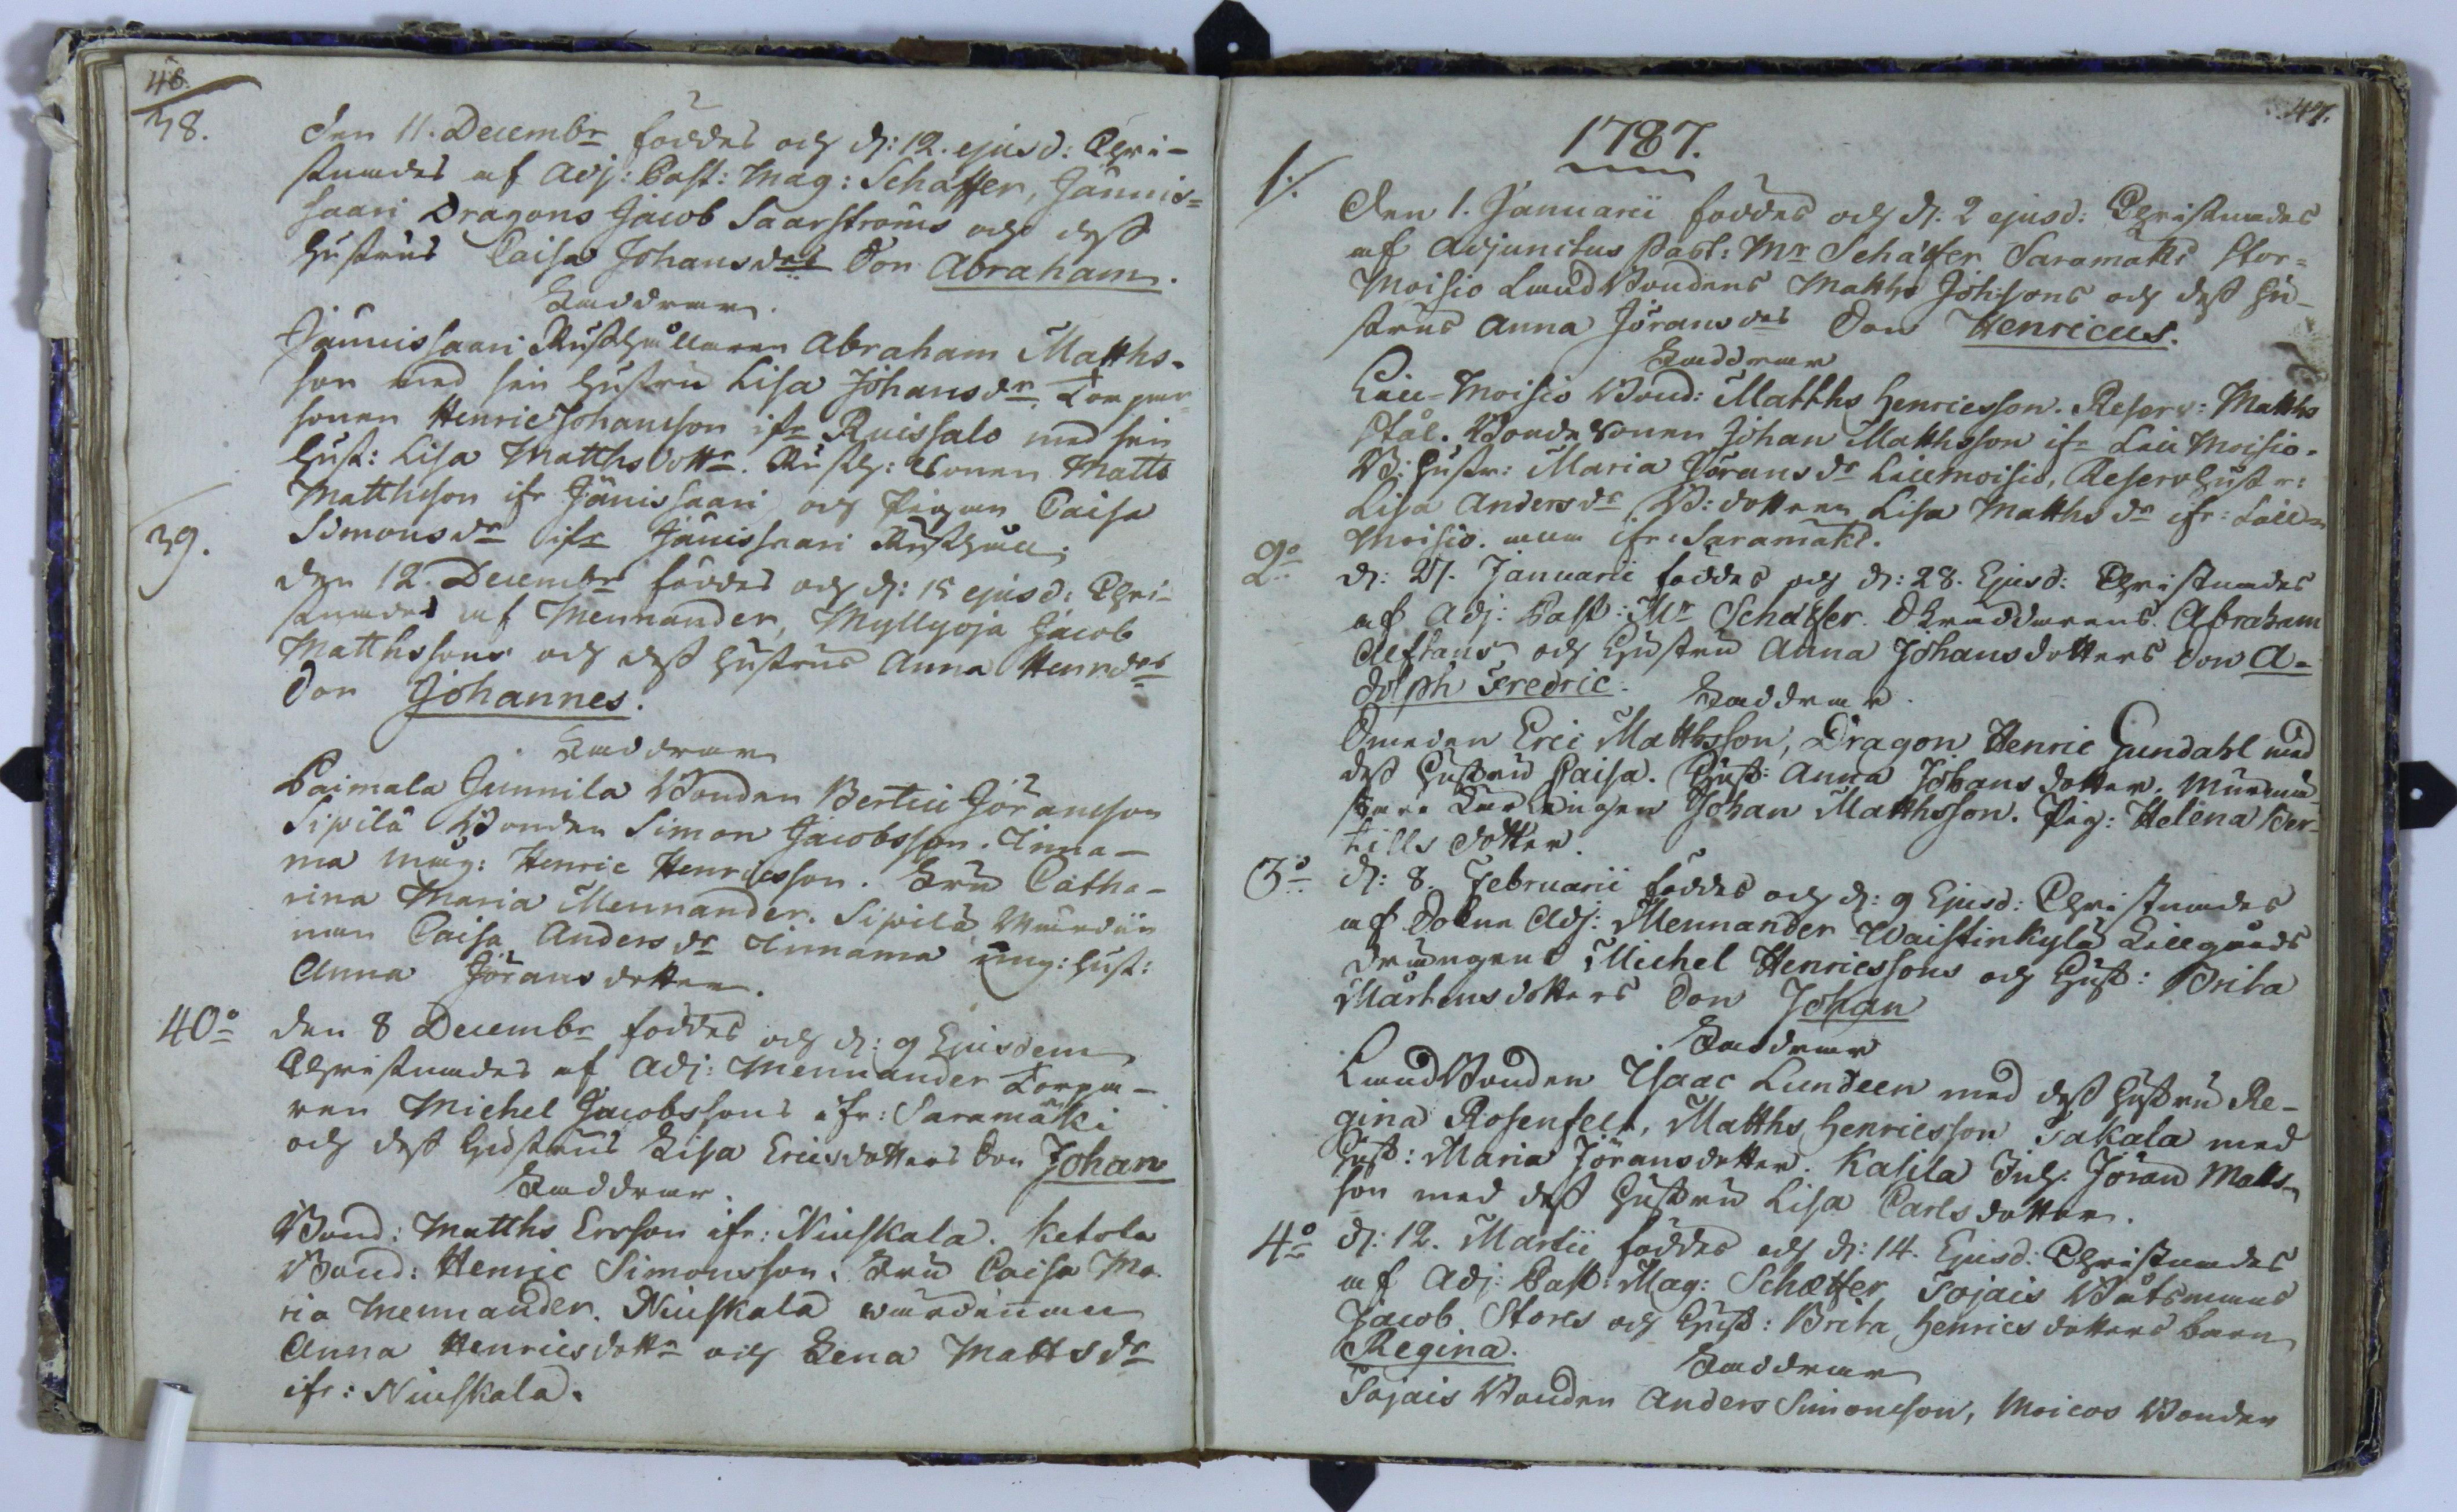 46.
38.
Den 11. Decembr föddes och d: 12. ejusd: Chri-
stnades af Adj: Past: Mag: Schaffer, Jännis=
saari Dragons Jacob Saarströms och dess
Hustrus Caisa Johansdrs Son Abraham.
Faddrar.
Jännissaari Rusthållaren Abraham Matths-
son med sin Hustru Lisa Johansdr Torpar
sonen Henric Johansson ifr Ruissalo med sin
Hust: Lisa Matthsdottr. Rusth: Sonen Matts
Matthsson ifr Jänissaari och Pigan Caisa
Simonsdr ifr Jänissaari Rusthåll.
39.
Den 12. Decembr föddes och d: 15 ejusd: Chri-
stnades af Mennander, Myllyoja Jacob
Matthssons och dess Hustrus Anna Henrdrs
Son Johannes.
Faddrar
Paimala Gunnila Bonden Bertill Jöransson
Sipilä Bonden Simon Jacobsson. Tinna-
ma Måg: Henric Henricsson. Fru Catha-
rina Maria Mennander. Sipilä Wärdin
nan Caisa Andersdr Tinnama mg: Hust:
Anna Jöransdotter.
40o
Den 8 Decembr föddes och d: 9 Ejusdem
Christnades af Adj: Mennander Torpa-
ren Michel Jacobssons ifr: Saramäki
och dess Hustrus Lisa Ericsdotters Son Johan
Faddrar.
Bond: Matths Ersson ifr: Niuskala. Ketola
Bond: Henric Simonsson. Fru Caisa Ma-
ria Mennander. Niuskala wärdinnan
Anna Henricsdottr och Lena Mattsdr
ifr: Niuskala.
47.
1787.
1.
Den 1. Januarii föddes och d. 2 ejusd: Christnades
af Adjunctus Past: Mr Schäffer Saramäki Stor=
Moisio LandBondens Matths Johssons och dess Hu-
strus Anna Jöransdrs Son Henricus.
Faddrar
Lill-Moisio Bond: Matths Henricsson. Reserv: Matths
Stål. Bondesonen Johan Matthsson ifr Lill Moisio.
B: Hustr: Maria Jöransdr Lillmoisio, Reserv Hustr:
Lisa Andersdr B: dottren Lisa Matthsdr ifr: Lill=
Moisio. ifr: Saramäki.
2o
d: 27. Januarii föddes och d: 28. Ejusd: Christnades
af Adj: Past: Mr Schäffer. Skräddarens Abraham
Alftans och Hustru Anna Johansdotters Son A-
dolph Fredric. Faddrar.
Smeden Eric Matthsson, Dragon Henric Gundahl med
dess Hustru Caisa. Hust: Anna Johansdotter. Murmä
stare Lärlingen Johan Matthsson. Pig: Helena Ber-
tills dotter.
3o
d: 8. Februarii föddes och d: 9 Ejusd: Christnades
af Sokne Adj: Mennander Waistinkylä Lillgårds
Drängens Michel Henricssons och Hust: Brita
Mårtensdotters Son Johan
Faddrar
LandBonden Isaac Lundeen med dess Hustru Re-
gina Rosenfelt, Matths Henricsson Takala med
Hust: Maria Jöransdotter. Kasila Inh: Jöran Matts-
son med dess Hustru Lisa Carlsdotter.
4o
d: 12. Martii föddes och d: 14. Ejusd: Christnades
af Adj: Past: Mag: Schæffer Tojais Båtsmans
Jacob Stores och Hust: Brita Henricsdotters barn
Regina. Faddrar
Tojais Bonden Anders Simonsson, Moicos Bonden